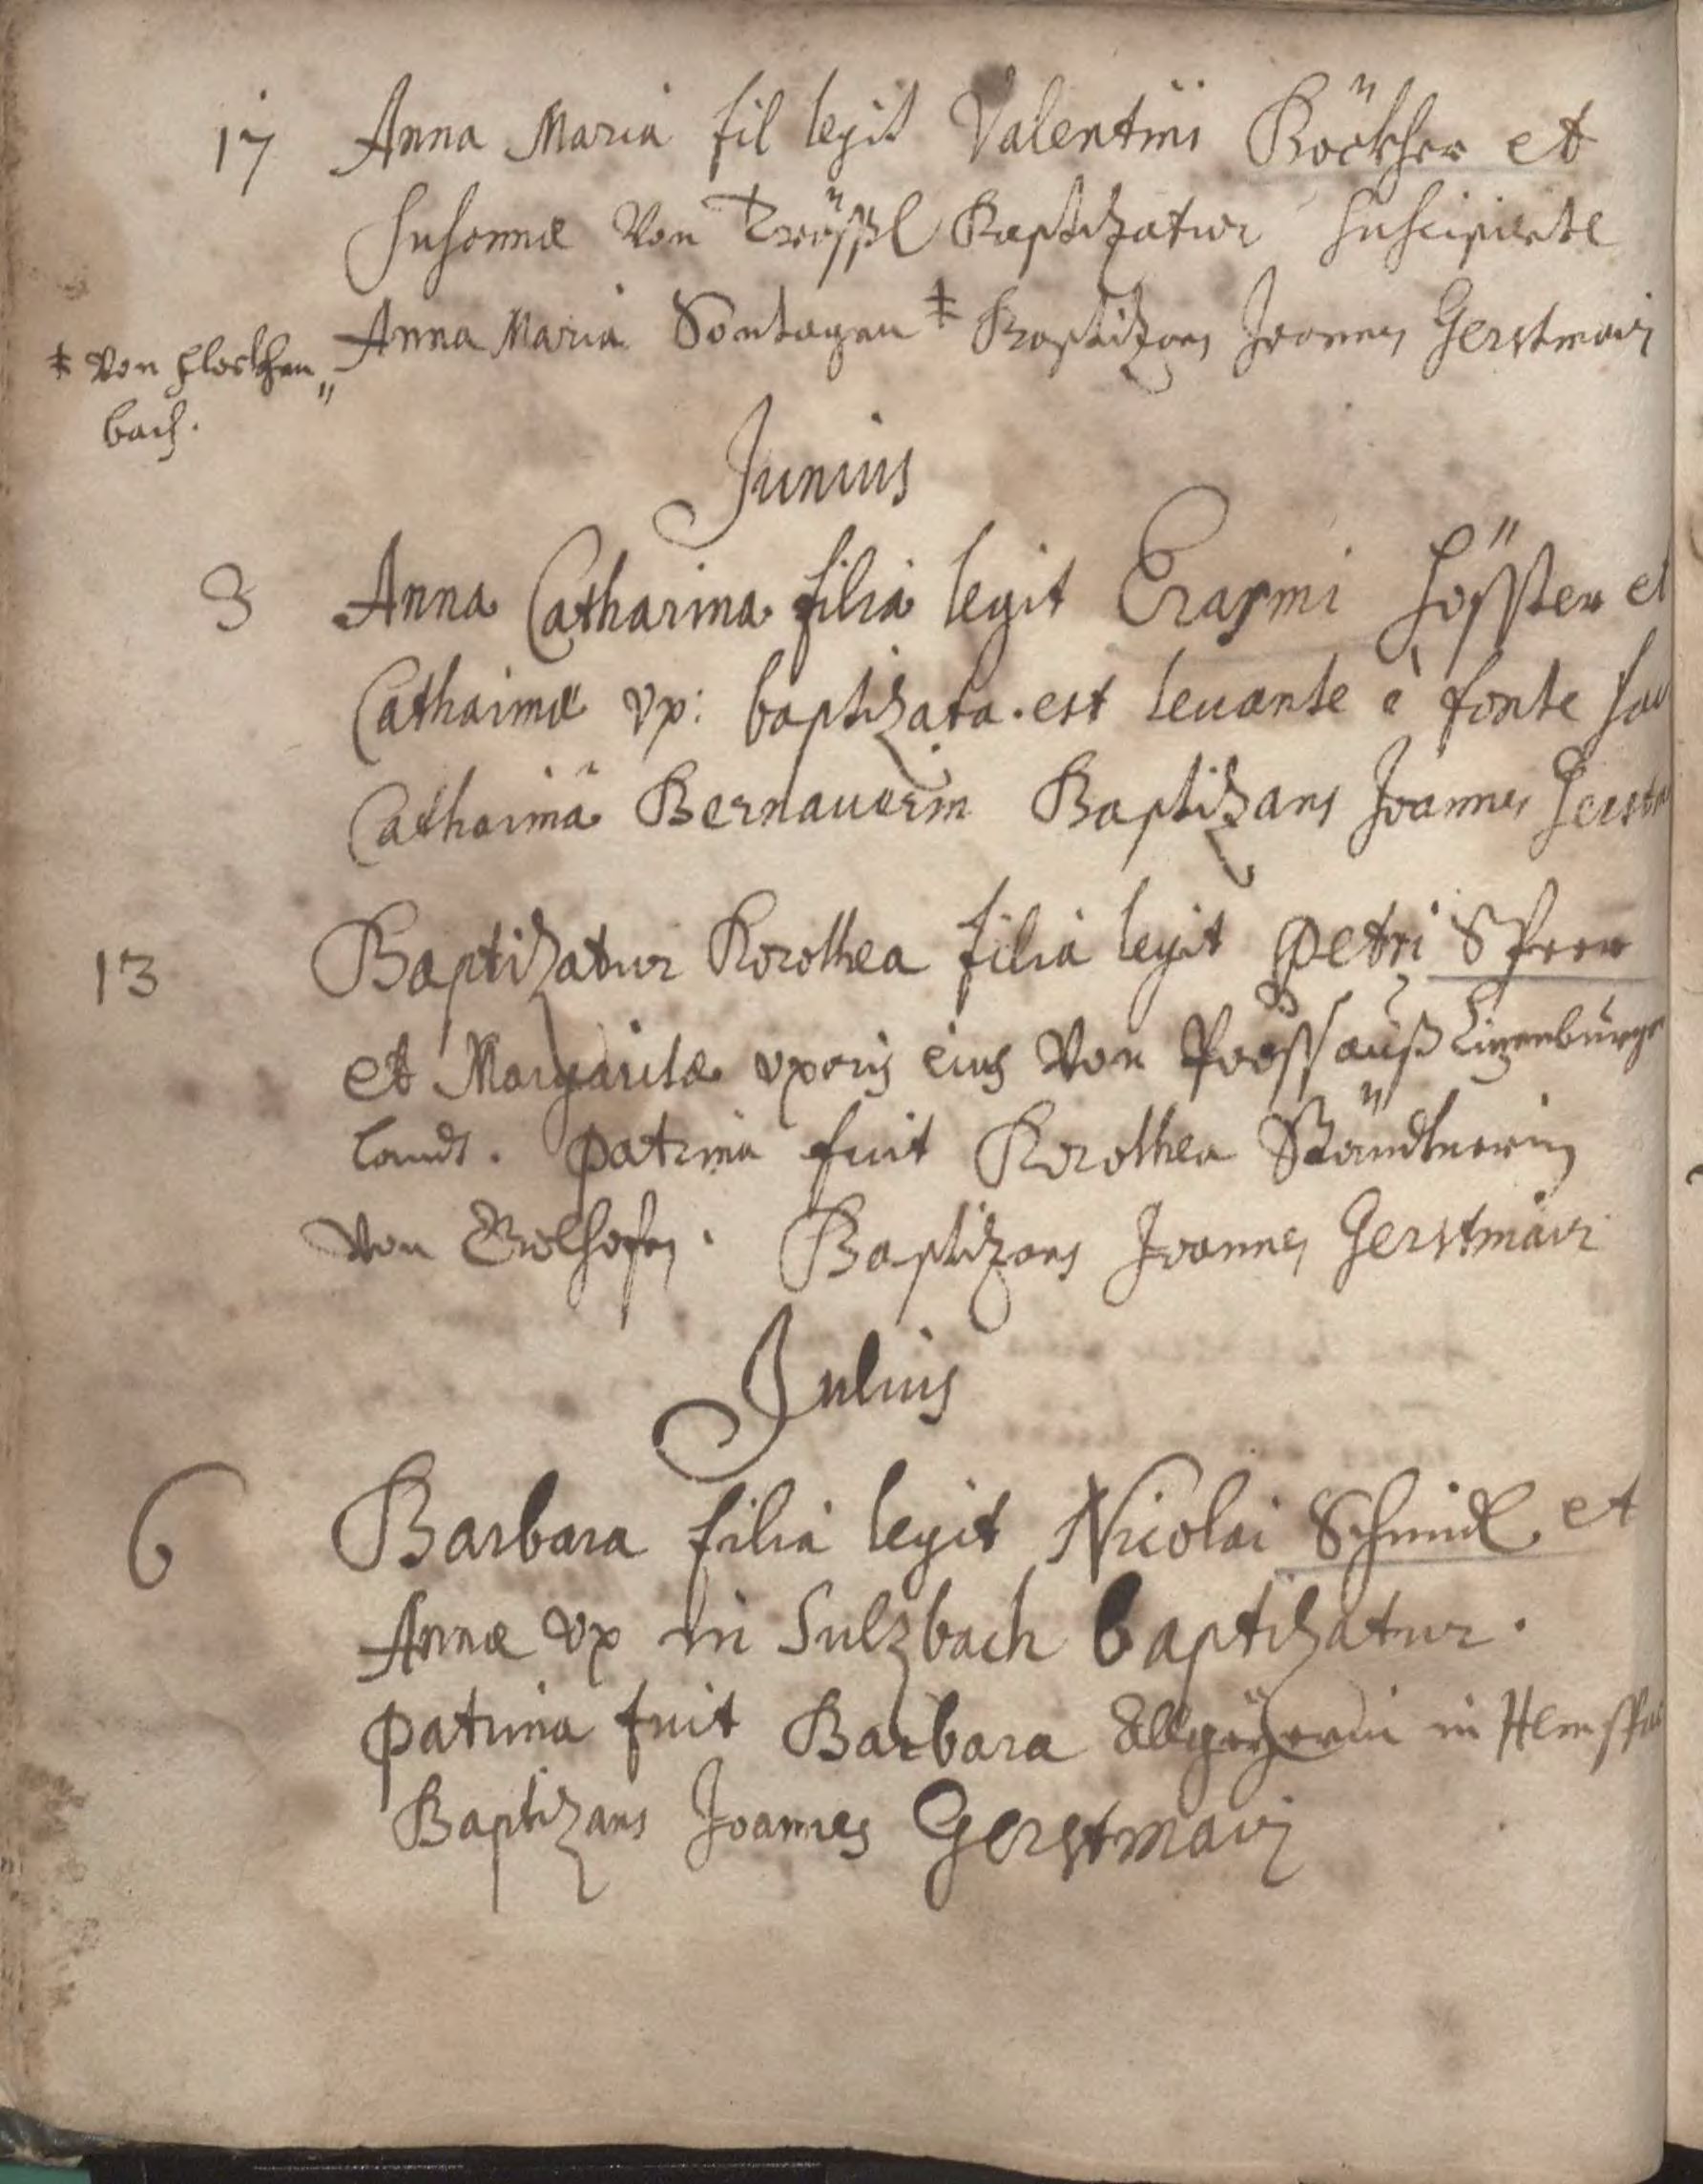 17 Anna Maria fil legit Valentini Röckher et
Susannæ Von Trößl Baptizatur suscipiente
Anna Maria Sontagen ‡ Baptizans Joannes Gerstmair
‡ Von Flockhen„
bach.
Junius
3 Anna Catharina filia legit Erasmi Hößler et
Catharinæ vx: baptizata est leuante è fonte
Catharinâ Bernauerin Baptizans Joannes Gerstm
13 Baptizatur Dorothea filia legit Petri
et Margaritæ vxoris eius Von auß Lizenburger
landt. Patrina fuit Dorothea Ständtnerin
Von. Baptizans Joannes Gerstmair
Julius
6 Barbara filia legit Nicolai Schmidl et
Annæ vx in Sulzbach baptizatur.
Patrina fuit Barbara in Hemspa
Baptizans Joannes Gerstmair